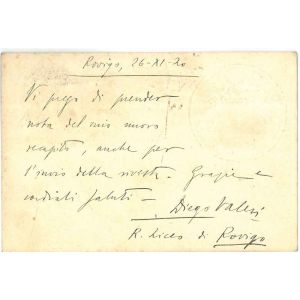 Rovigo, 26-XI-20
Vi prego di prender
nota del mio nuovo
recapito, anche per
l'invio della rivista. Grazie e
cordiali saluti -
Diego Valeri
R. Liceo di Rovigo